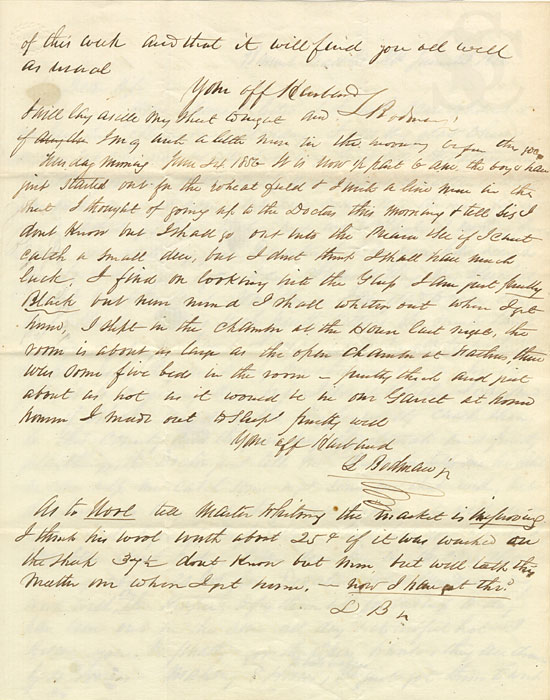 of this week and that it will find you all well
as usual
Your aff Husband
I will lay aside my sheet tonight and L Bodman
I may write a little more in the morning
Thursday morning June 1856 It is now ½ past 6 am the boys have
just started out for the wheat field & I write a line more in the
I thought of going up to the Doctors this morning & tell Sis I
dont know but I shall go out into the Prairie & see if I cant
catch a small deer, but I dont think I shall have much
luck. I find on looking into the Glass I am just
Black but never mind I shall whiten out when I get
home, I slept in the chamber at the House last night, the
room is about as large as the open chamber at there
was some five beds in the room – pretty thick and just
about as hot as it would be in our Garret at home
I made out to sleep pretty well
Your aff Husband
L Bodman jr
As to Wool tell Master Whitney the market is improving
I think his wool worth about 25¢ if it was washed on
the sheep dont know but more, but will talk this
matter over when I get home. – now I have got thro
L B jr